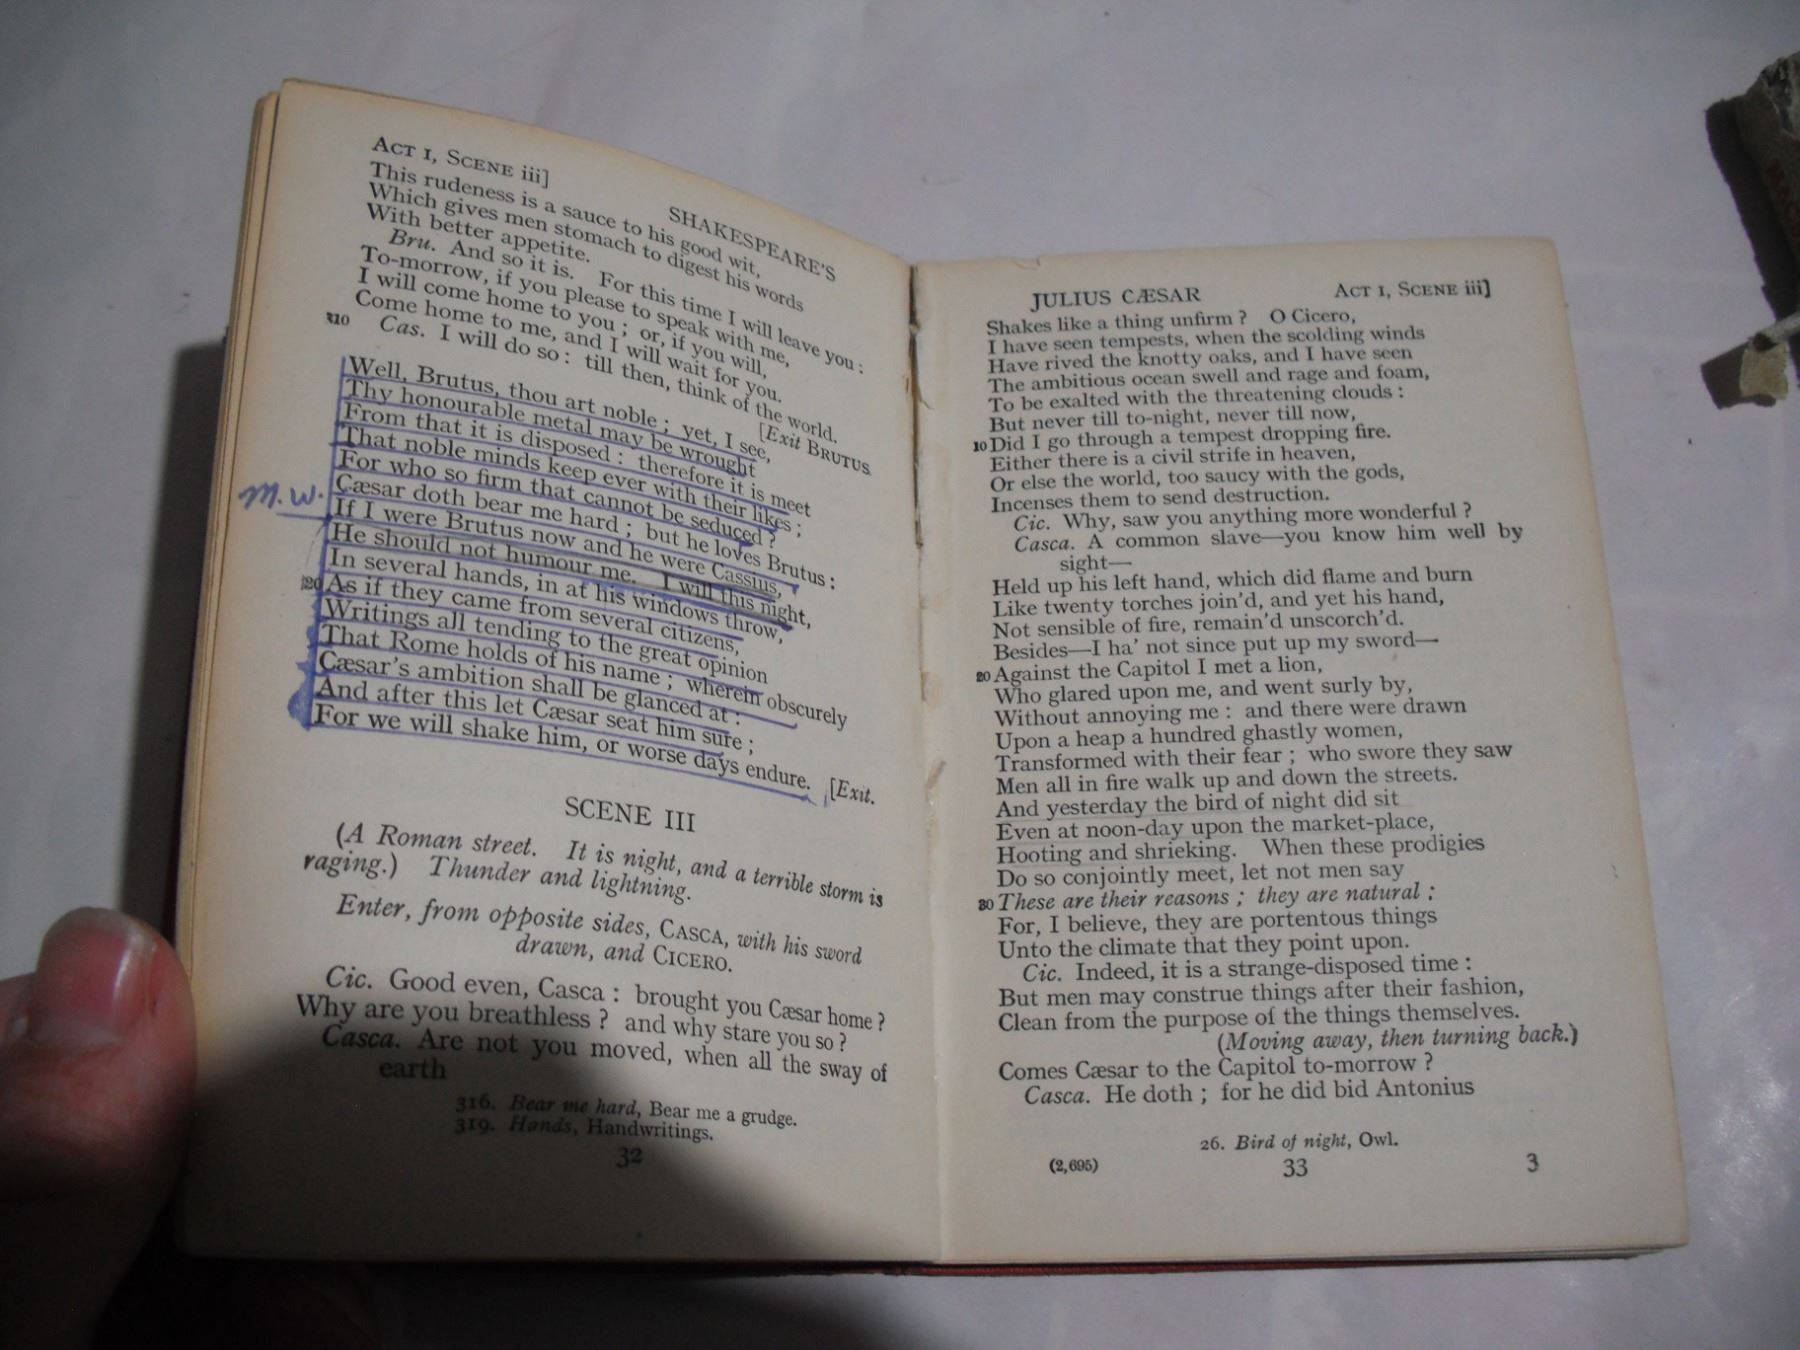 ACT I, SCENE iii]
SHAKESPEARE'S
This rudeness is a sauce to his good wit,
Which gives men stomach to digest his words
With better appetite.
Bru. And so it is. For this time I will leave you :
To-morrow, if you please to speak with me,
I will come home to you ; or, if you will,
Come home to me, and I will wait for you.
310 Cas. I will do so : till then, think of the world.
[Exit BRUTUS
Well, Brutus, thou art noble ; yet, I see,
Thy honourable metal may be wrought
From that it is disposed : therefore it is meet
That noble minds keep ever with their likes ;
For who so firm that cannot be seduced ?
M.W.
Cæsar doth bear me hard ; but he loves Brutus :
If I were Brutus now and he were Cassius,
He should not humour me. I will this night,
In several hands, in at his windows throw,
320 As if they came from several citizens,
Writings all tending to the great opinion
That Rome holds of his name ; wherein obscurely
Cæsar's ambition shall be glanced at :
And after this let Cæsar seat him sure ;
For we will shake him, or worse days endure. [Exit.
SCENE III
(A Roman street. It is night, and a terrible storm is
raging.) Thunder and lightning.
Enter, from opposite sides, CASCA, with his sword
drawn, and CICERO.
Cic. Good even, Casca : brought you Cæsar home ?
Why are you breathless ? and why stare you so ?
Casca. Are not you moved, when all the sway of
earth
316. Bear me hard, Bear me a grudge.
319. Hands, Handwritings.
32
JULIUS CÆSAR
ACT I, SCENE iii]
Shakes like a thing unfirm ? O Cicero,
I have seen tempests, when the scolding winds
Have rived the knotty oaks, and I have seen
The ambitious ocean swell and rage and foam,
To be exalted with the threatening clouds :
But never till to-night, never till now,
10 Did I go through a tempest dropping fire.
Either there is a civil strife in heaven,
Or else the world, too saucy with the gods,
Incenses them to send destruction.
Cic. Why, saw you anything more wonderful ?
Casca. A common slave—you know him well by
sight—
Held up his left hand, which did flame and burn
Like twenty torches join'd, and yet his hand,
Not sensible of fire, remain'd unscorch'd.
Besides—I ha' not since put up my sword—
20 Against the Capitol I met a lion,
Who glared upon me, and went surly by,
Without annoying me : and there were drawn
Upon a heap a hundred ghastly women,
Transformed with their fear ; who swore they saw
Men all in fire walk up and down the streets.
And yesterday the bird of night did sit
Even at noon-day upon the market-place,
Hooting and shrieking. When these prodigies
Do so conjointly meet, let not men say
30 These are their reasons ; they are natural ;
For, I believe, they are portentous things
Unto the climate that they point upon.
Cic. Indeed, it is a strange-disposed time :
But men may construe things after their fashion,
Clean from the purpose of the things themselves.
(Moving away, then turning back.)
Comes Cæsar to the Capitol to-morrow ?
Casca. He doth ; for he did bid Antonius
26. Bird of night, Owl.
(2,695) 33 3